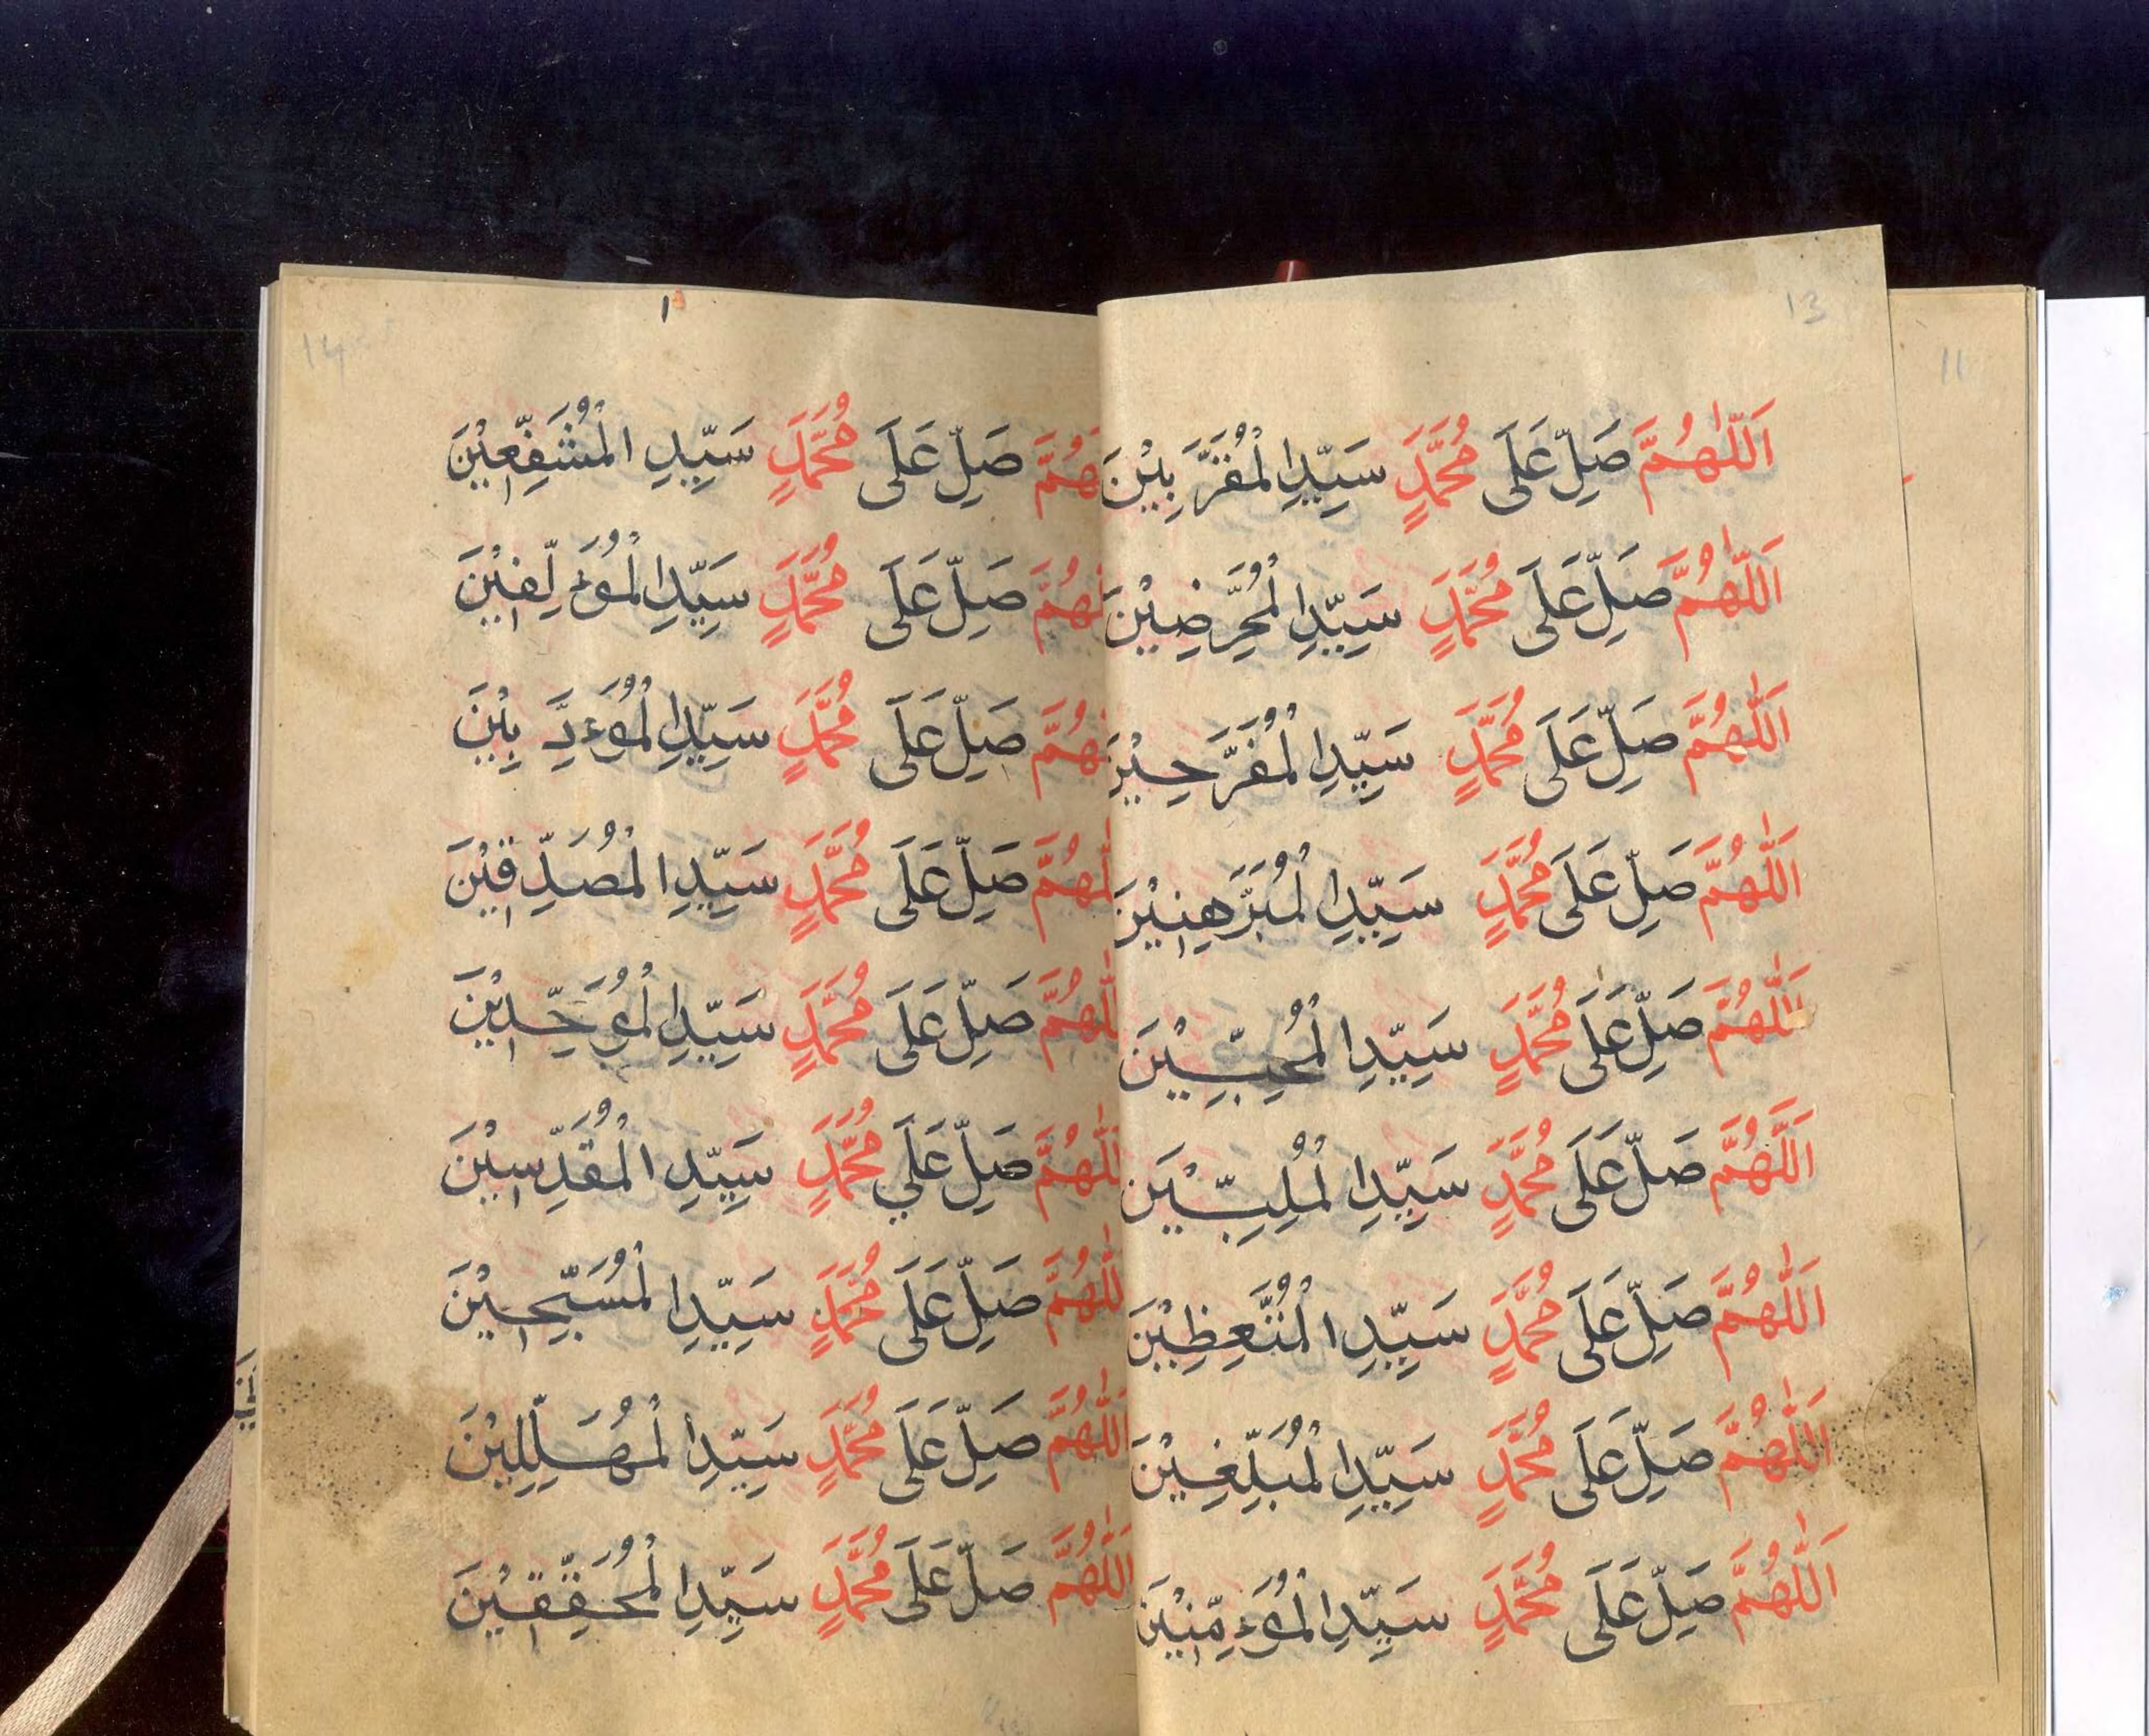 13
اَللّٰهُمَّ صَلِّ عَلَى مُحَمَّدٍ سَيِّدِ الْمُقَرَّبِيْنَ
اَللّٰهُمَّ صَلِّ عَلَى مُحَمَّدٍ سَيِّدِ الْمُحَرِّضِيْنَ
اَللّٰهُمَّ صَلِّ عَلَى مُحَمَّدٍ سَيِّدِ الْمُفَرَّحِيْنَ
اَللّٰهُمَّ صَلِّ عَلَى مُحَمَّدٍ سَيِّدِ الْمُبَرَّهِنِيْنَ
اَللّٰهُمَّ صَلِّ عَلَى مُحَمَّدٍ سَيِّدِ الْمُحِبِّيْنَ
اَللّٰهُمَّ صَلِّ عَلَى مُحَمَّدٍ سَيِّدِ الْمُلِبِّيْنَ
اَللّٰهُمَّ صَلِّ عَلَى مُحَمَّدٍ سَيِّدِ الْمُتَّعِظِيْنَ
اَللّٰهُمَّ صَلِّ عَلَى مُحَمَّدٍ سَيِّدِ الْمُبَلِّغِيْنَ
اَللّٰهُمَّ صَلِّ عَلَى مُحَمَّدٍ سَيِّدِ الْمُوَءمِّنِيْنَ
11
14
هُمَّ صَلِّ عَلَى مُحَمَّدٍ سَيِّدِ الْمُشَفِّعِيْنَ
لّٰهُمَّ صَلِّ عَلَى مُحَمَّدٍ سَيِّدِ الْمُوَءلِّفِيْنَ
هُمَّ صَلِّ عَلَى مُحَمَّدٍ سَيِّدِ الْمُوَءدِّبِيْنَ
لّٰهُمَّ صَلِّ عَلَى مُحَمَّدٍ سَيِّدِ الْمُصَدِّقِيْنَ
للّٰهُمَّ صَلِّ عَلَى مُحَمَّدٍ سَيِّدِ الْمُوَحِّدِيْنَ
للّٰهُمَّ صَلِّ عَلَي مُحَمَّدٍ سَيِّدِ الْمُقَدِّسِيْنَ
للّٰهُمَّ صَلِّ عَلَى مُحَمَّدٍ سَيِّدِ الْمُسَبِّحِيْنَ
اَللّٰهُمَّ صَلِّ عَلَى مُحَمَّدٍ سَيِّدِ الْمُهَلِّلِيْنَ
اَللّٰهُمَّ صَلِّ عَلَى مُحَمَّدٍ سَيِّدِ الْمُحَقِّقِيْنَ